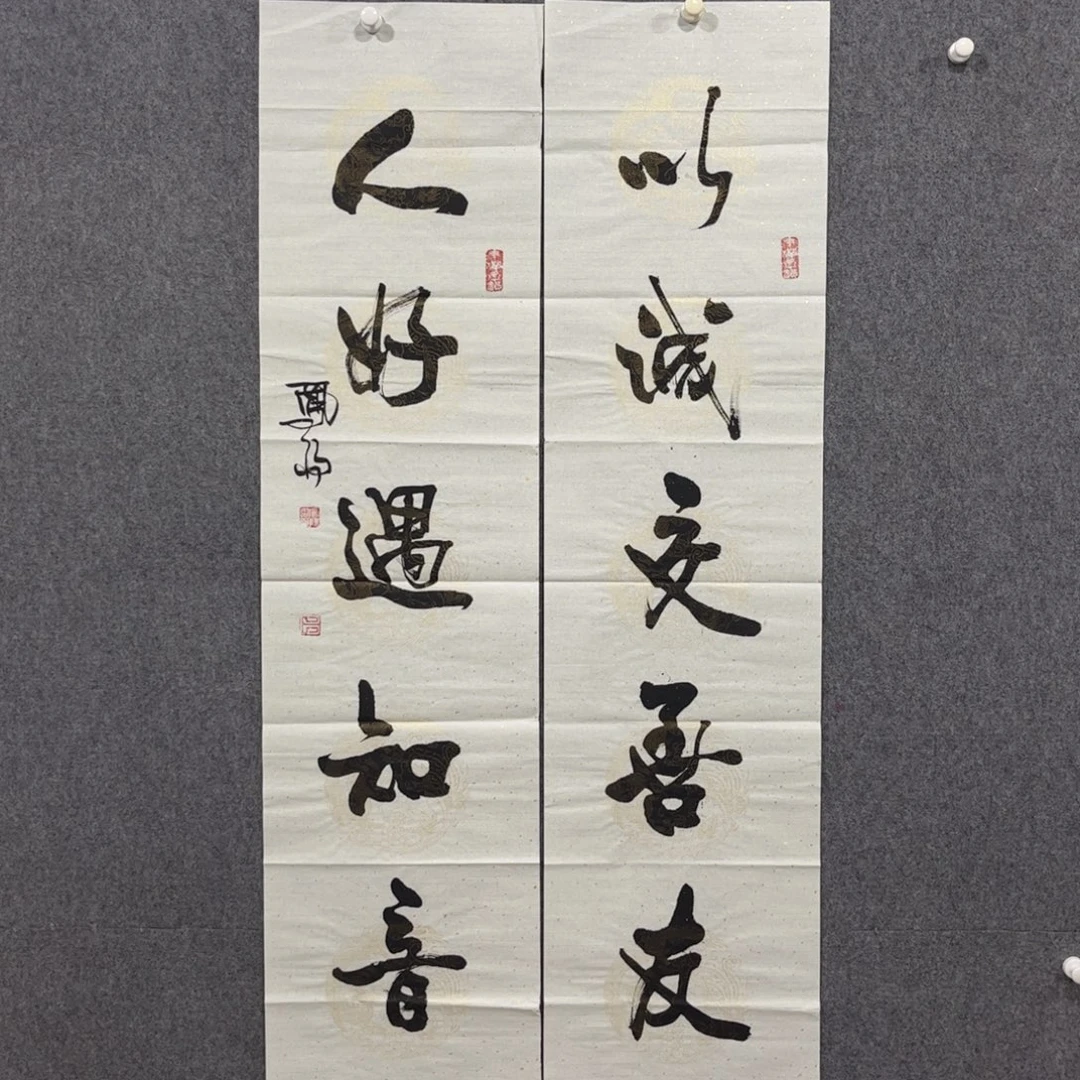 以诚交吾友
人好遇知音